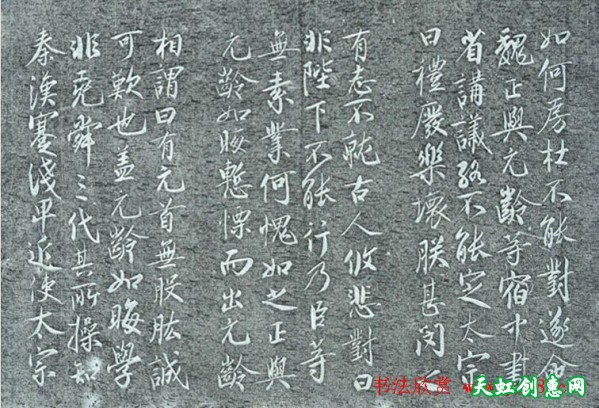 如何房杜不能對遂命
魏正與元齡等宿中書
省講議終不能定太宗
曰禮廢樂壞朕甚閔之
有志不就古人攸悲對曰
非陛下不能行乃臣等
無素業何愧如之正與
元齡如晦慙慄而出元齡
相謂曰有元首無股肱誠
可歎也盖元齡如晦學
非堯舜三代其所操知
秦漢蹇淺卑近使太宗
书法欣赏
天虹创意网